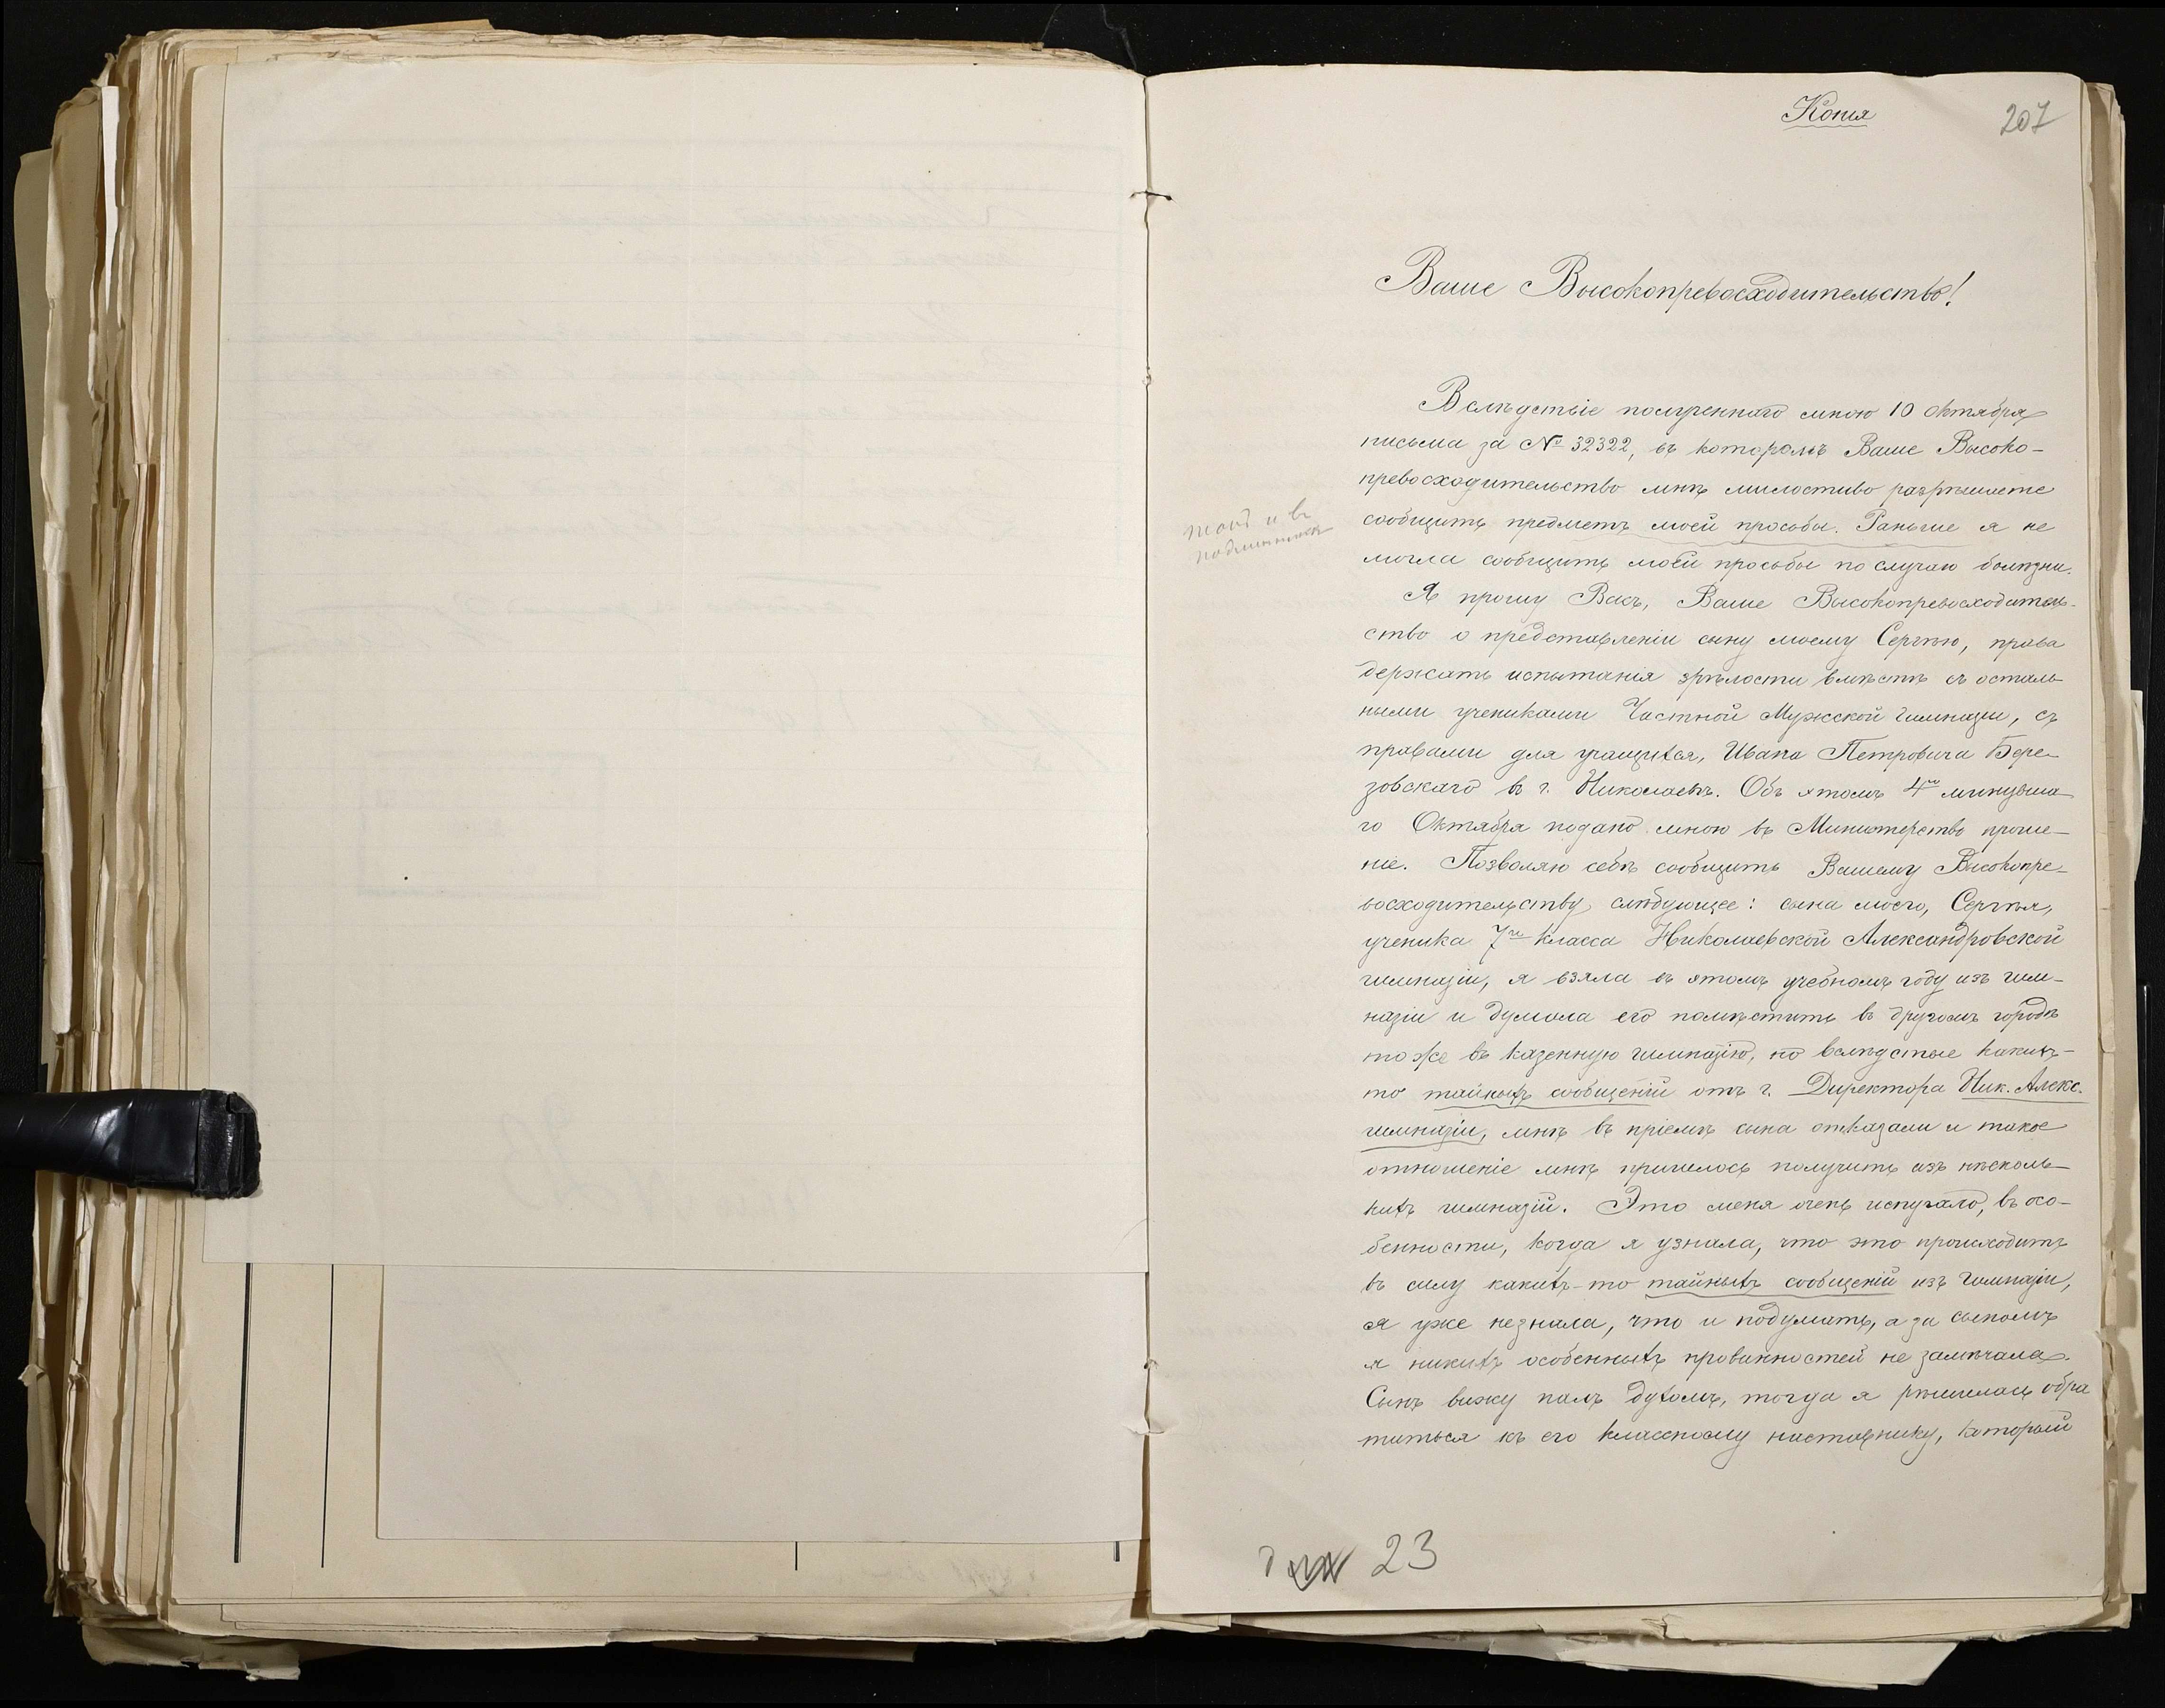 Копія
207
Ваше Высокопревосходительство!
Вслѣдствіе полученнаго мною 10 Октября
письма за № 32322, въ которомъ Ваше Высоко-
превосходительство мнѣ милостиво разрѣшаете
сообщить предметъ моей просьбы. Раньше я не
могла сообщить моей просьбы по случаю болѣзни.
такъ и въ
подлинникѣ
Я прошу Васъ, Ваше Высокопревосходитель-
ство о представленіи сыну моему Сергѣю, права
держать испытанія зрѣлости вмѣстѣ съ осталь
ными учениками Частной Мужской гимназіи, съ
правами для учащихся, Ивана Петровича Бере-
зовскаго въ г. Николаевѣ. Объ этомъ 4го минувша
го Октября подано мною въ Министерство проше-
ніе. Позволяю себѣ сообщить Вашему Высокопре-
восходительству слѣдующее: сына моего, Сергѣя,
ученика 7го класса Николаевской Александровской
гимназіи, я взяла въ этомъ учебномъ году изъ гим-
назіи и думала его помѣстить въ другомъ городѣ
тоже въ казенную гимназію, но вслѣдствіе какихъ-
то тайныхъ сообщеній отъ г. Директора Ник. Алекс.
гимназіи, мнѣ въ пріемѣ сына отказали и такое
отношеніе мнѣ пришлось получить изъ нѣсколь-
кихъ гимназій. Это меня очень испугало, въ осо-
бенности, когда я узнала, что это происходитъ
въ силу какихъ-то тайныхъ сообщеній изъ гимназіи,
я уже незнала, что и подумать, а за сыномъ
я никихъ особенныхъ провинностей не замѣчала.
Сынъ вижу палъ духомъ, тогда я рѣшилась обра
титься къ его классному наставнику, который
23